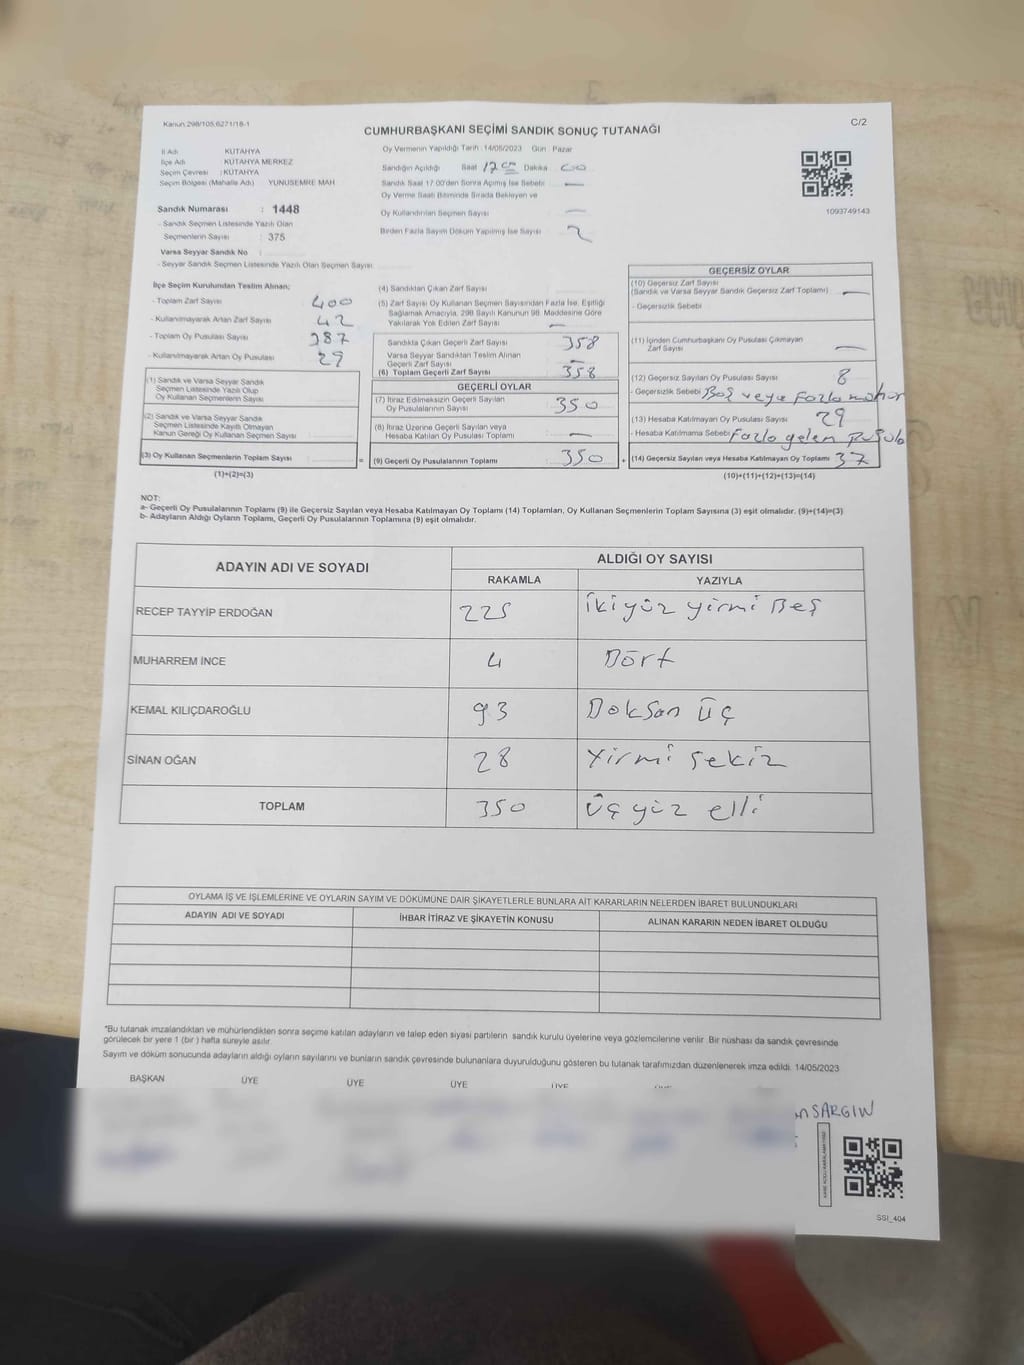 Kanun 298/105,6271/18-1
C/2
CUMHURBAŞKANI SEÇİMİ SANDIK SONUÇ TUTANAĞI
İl Adı KÜTAHYA
İlçe Adı KÜTAHYA MERKEZ
Seçim Çevresi : KÜTAHYA
Seçim Bölgesi (Mahalle Adı) YUNUSEMRE MAH
Oy Vermenin Yapıldığı Tarih 14/05/2023 Gün Pazar
Sandığın Açıldığı Saat 17 Dakika 00
Sandık Saat 17.00'den Sonra Açılmış İse Sebebi —
Oy Verme Saati Bitiminde Sırada Bekleyen ve
Oy Kullandırılan Seçmen Sayısı —
Birden Fazla Sayım Döküm Yapılmış İse Sayısı 2
1093749143
Sandık Numarası : 1448
- Sandık Seçmen Listesinde Yazılı Olan
Seçmenlerin Sayısı : 375
Varsa Seyyar Sandık No
- Seyyar Sandık Seçmen Listesinde Yazılı Olan Seçmen Sayısı
İlçe Seçim Kurulundan Teslim Alınan;
- Toplam Zarf Sayısı 400
- Kullanılmayarak Artan Zarf Sayısı 42
- Toplam Oy Pusulası Sayısı 387
- Kullanılmayarak Artan Oy Pusulası 29
(1) Sandık ve Varsa Seyyar Sandık
Seçmen Listesinde Yazılı Olup
Oy Kullanan Seçmenlerin Sayısı
(2) Sandık ve Varsa Seyyar Sandık
Seçmen Listesinde Kayıtlı Olmayan
Kanun Gereği Oy Kullanan Seçmen Sayısı
(3) Oy Kullanan Seçmenlerin Toplam Sayısı =
(1)+(2)=(3)
(4) Sandıktan Çıkan Zarf Sayısı
(5) Zarf Sayısı Oy Kullanan Seçmen Sayısından Fazla İse, Eşitliği
Sağlamak Amacıyla, 298 Sayılı Kanunun 98. Maddesine Göre
Yakılarak Yok Edilen Zarf Sayısı —
Sandıkta Çıkan Geçerli Zarf Sayısı 358
Varsa Seyyar Sandıktan Teslim Alınan
Geçerli Zarf Sayısı —
(6) Toplam Geçerli Zarf Sayısı 358
GEÇERLİ OYLAR
(7) İtiraz Edilmeksizin Geçerli Sayılan
Oy Pusulalarının Sayısı 350
(8) İtiraz Üzerine Geçerli Sayılan veya
Hesaba Katılan Oy Pusulası Toplamı —
(9) Geçerli Oy Pusulalarının Toplamı 350 +
GEÇERSİZ OYLAR
(10) Geçersiz Zarf Sayısı
(Sandık ve Varsa Seyyar Sandık Geçersiz Zarf Toplamı) —
- Geçersizlik Sebebi
(11) İçinden Cumhurbaşkanı Oy Pusulası Çıkmayan
Zarf Sayısı —
(12) Geçersiz Sayılan Oy Pusulası Sayısı 8
- Geçersizlik Sebebi Boş veya fazla mühür
(13) Hesaba Katılmayan Oy Pusulası Sayısı 29
- Hesaba Katılmama Sebebi Fazla gelen
(14) Geçersiz Sayılan veya Hesaba Katılmayan Oy Toplamı 37
(10)+(11)+(12)+(13)=(14)
NOT:
a- Geçerli Oy Pusulalarının Toplamı (9) ile Geçersiz Sayılan veya Hesaba Katılmayan Oy Toplamı (14) Toplamları, Oy Kullanan Seçmenlerin Toplam Sayısına (3) eşit olmalıdır. (9)+(14)=(3)
b- Adayların Aldığı Oyların Toplamı, Geçerli Oy Pusulalarının Toplamına (9) eşit olmalıdır.
ADAYIN ADI VE SOYADI
ALDIĞI OY SAYISI
RAKAMLA YAZIYLA
RECEP TAYYİP ERDOĞAN 225 İkiyüz yirmi Beş
MUHARREM İNCE 4 Dört
KEMAL KILIÇDAROĞLU 93 Doksan Üç
SİNAN OĞAN 28 Yirmi sekiz
TOPLAM 350 Üç yüz elli
OYLAMA İŞ VE İŞLEMLERİNE VE OYLARIN SAYIM VE DÖKÜMÜNE DAİR ŞİKAYETLERLE BUNLARA AİT KARARLARIN NELERDEN İBARET BULUNDUKLARI
ADAYIN ADI VE SOYADI İHBAR İTİRAZ VE ŞİKAYETİN KONUSU ALINAN KARARIN NEDEN İBARET OLDUĞU
*Bu tutanak imzalandıktan ve mühürlendikten sonra seçime katılan adayların ve talep eden siyasi partilerin sandık kurulu üyelerine veya gözlemcilerine verilir. Bir nüshası da sandık çevresinde
görülecek bir yere 1 (bir ) hafta süreyle asılır.
Sayım ve döküm sonucunda adayların aldığı oyların sayılarını ve bunların sandık çevresinde bulunanlara duyurulduğunu gösteren bu tutanak tarafımızdan düzenlenerek imza edildi. 14/05/2023
BAŞKAN ÜYE ÜYE ÜYE ÜYE
SARGIN
SSI_404